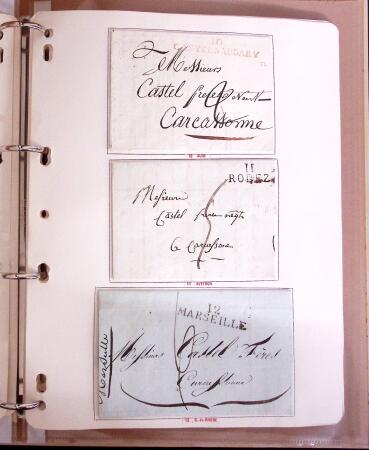 10
CASTELNAUDARY
Messieurs
Castel frères Negt
Carcassonne
10 AUDE
11
RODEZ
Messieurs
Castel frères negts
à Carcassonne
11 AVEYRON
12
MARSEILLE
Marseille
Messieurs Castel Frères
Carcassonne
12 B. du RHONE